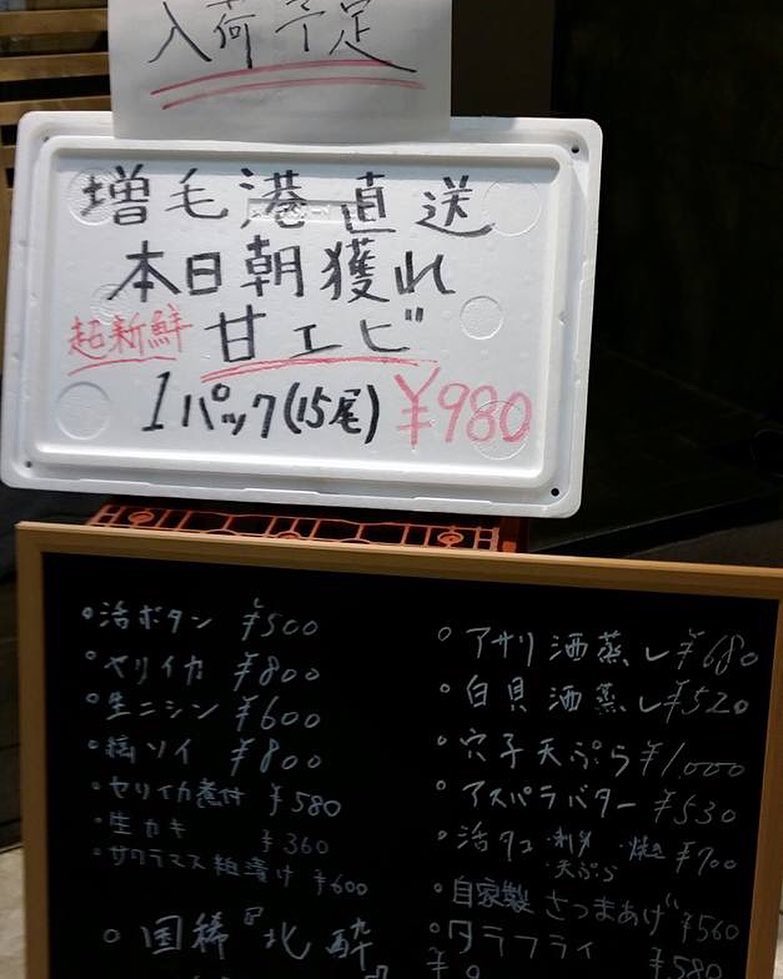 入荷予定
増毛港直送
本日朝獲れ
超新鮮 甘エビ
1パック(15尾) ¥980
・活ボタン ¥500
・ヤリイカ ¥800
・生ニシン ¥600
・縞ソイ ¥800
・ヤリイカ煮付 ¥580
・生カキ ¥360
・サクラマス粕漬け ¥600
○国稀『北酔
○アサリ酒蒸し ¥680
○白貝酒蒸し ¥520
○穴子天ぷら ¥1,000
○アスパラバター ¥530
○活タコ ・刺身 ・焼き ・天ぷら ¥700
○自家製さつまあげ ¥560
○タラフライ ¥580